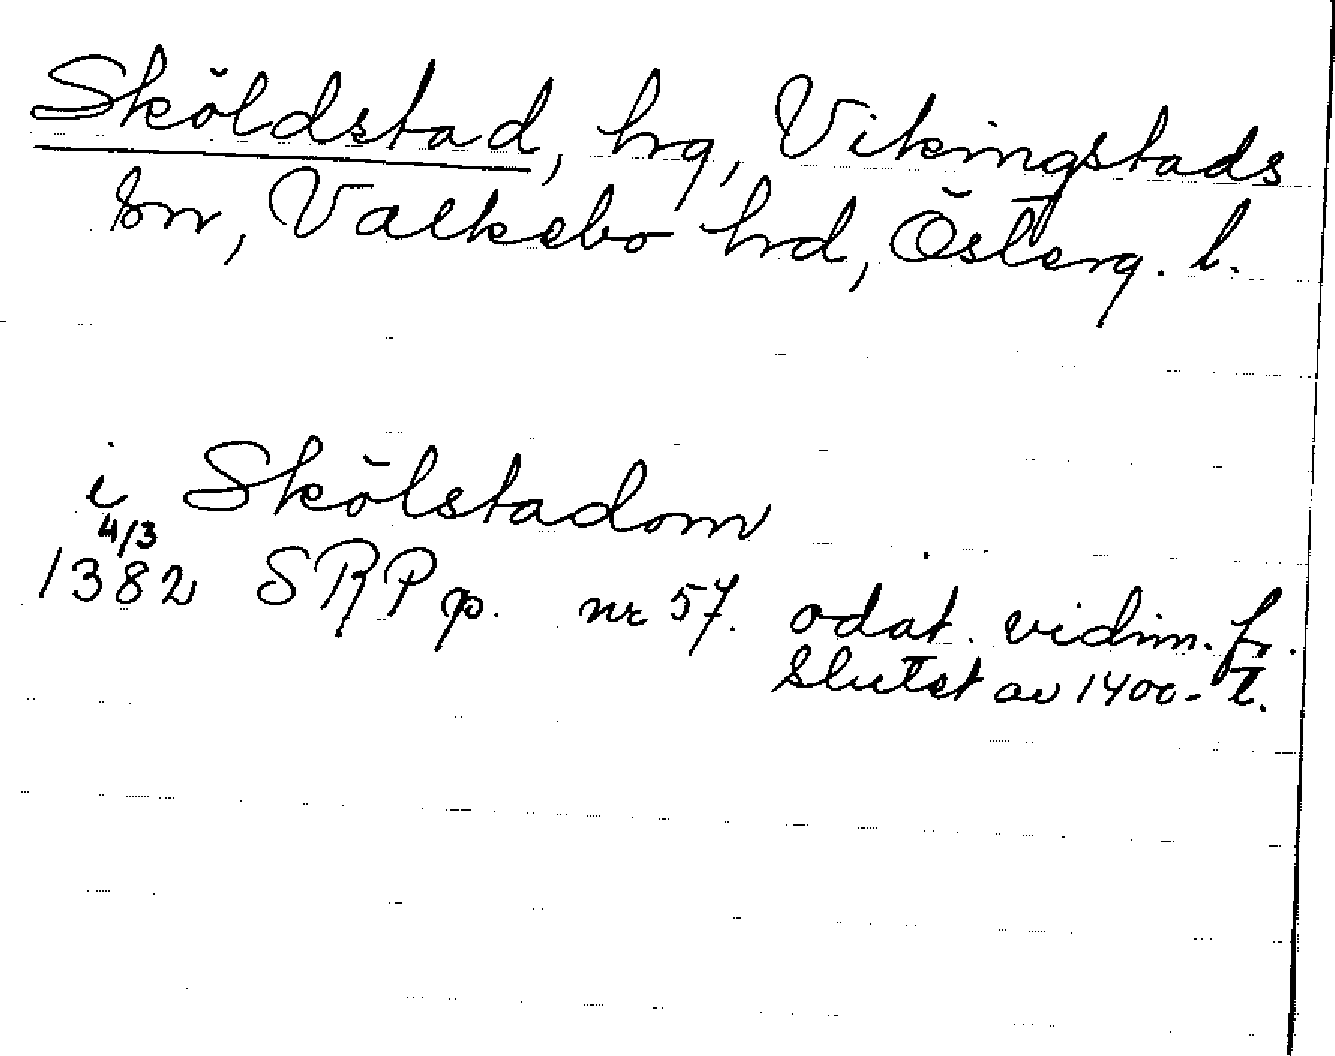 Sköldstad, hrg, Vikingstads
sn, Valkebo hrd, Österg. l.
i Skölstadom
4/3
1382 SRPp. nr 57. odat. vidim. fr.
slutet av 1400-t.